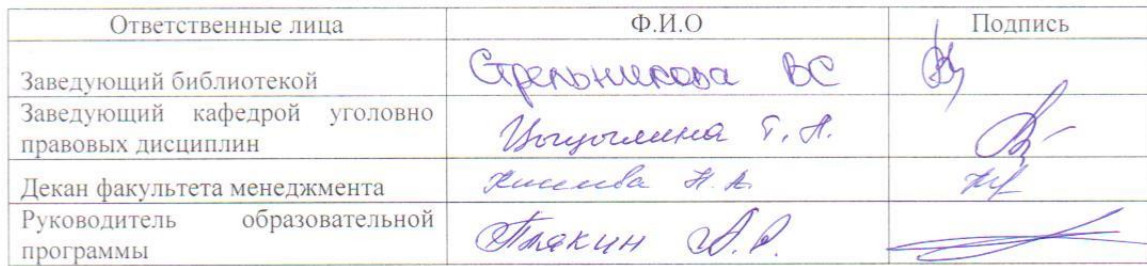 Ответственные лица Ф.И.О Подпись
Заведующий библиотекой Стрельникова ВС
Заведующий кафедрой уголовно
правовых дисциплин
Т. А.
Декан факультета менеджмента Н. А.
Руководитель образовательной
программы